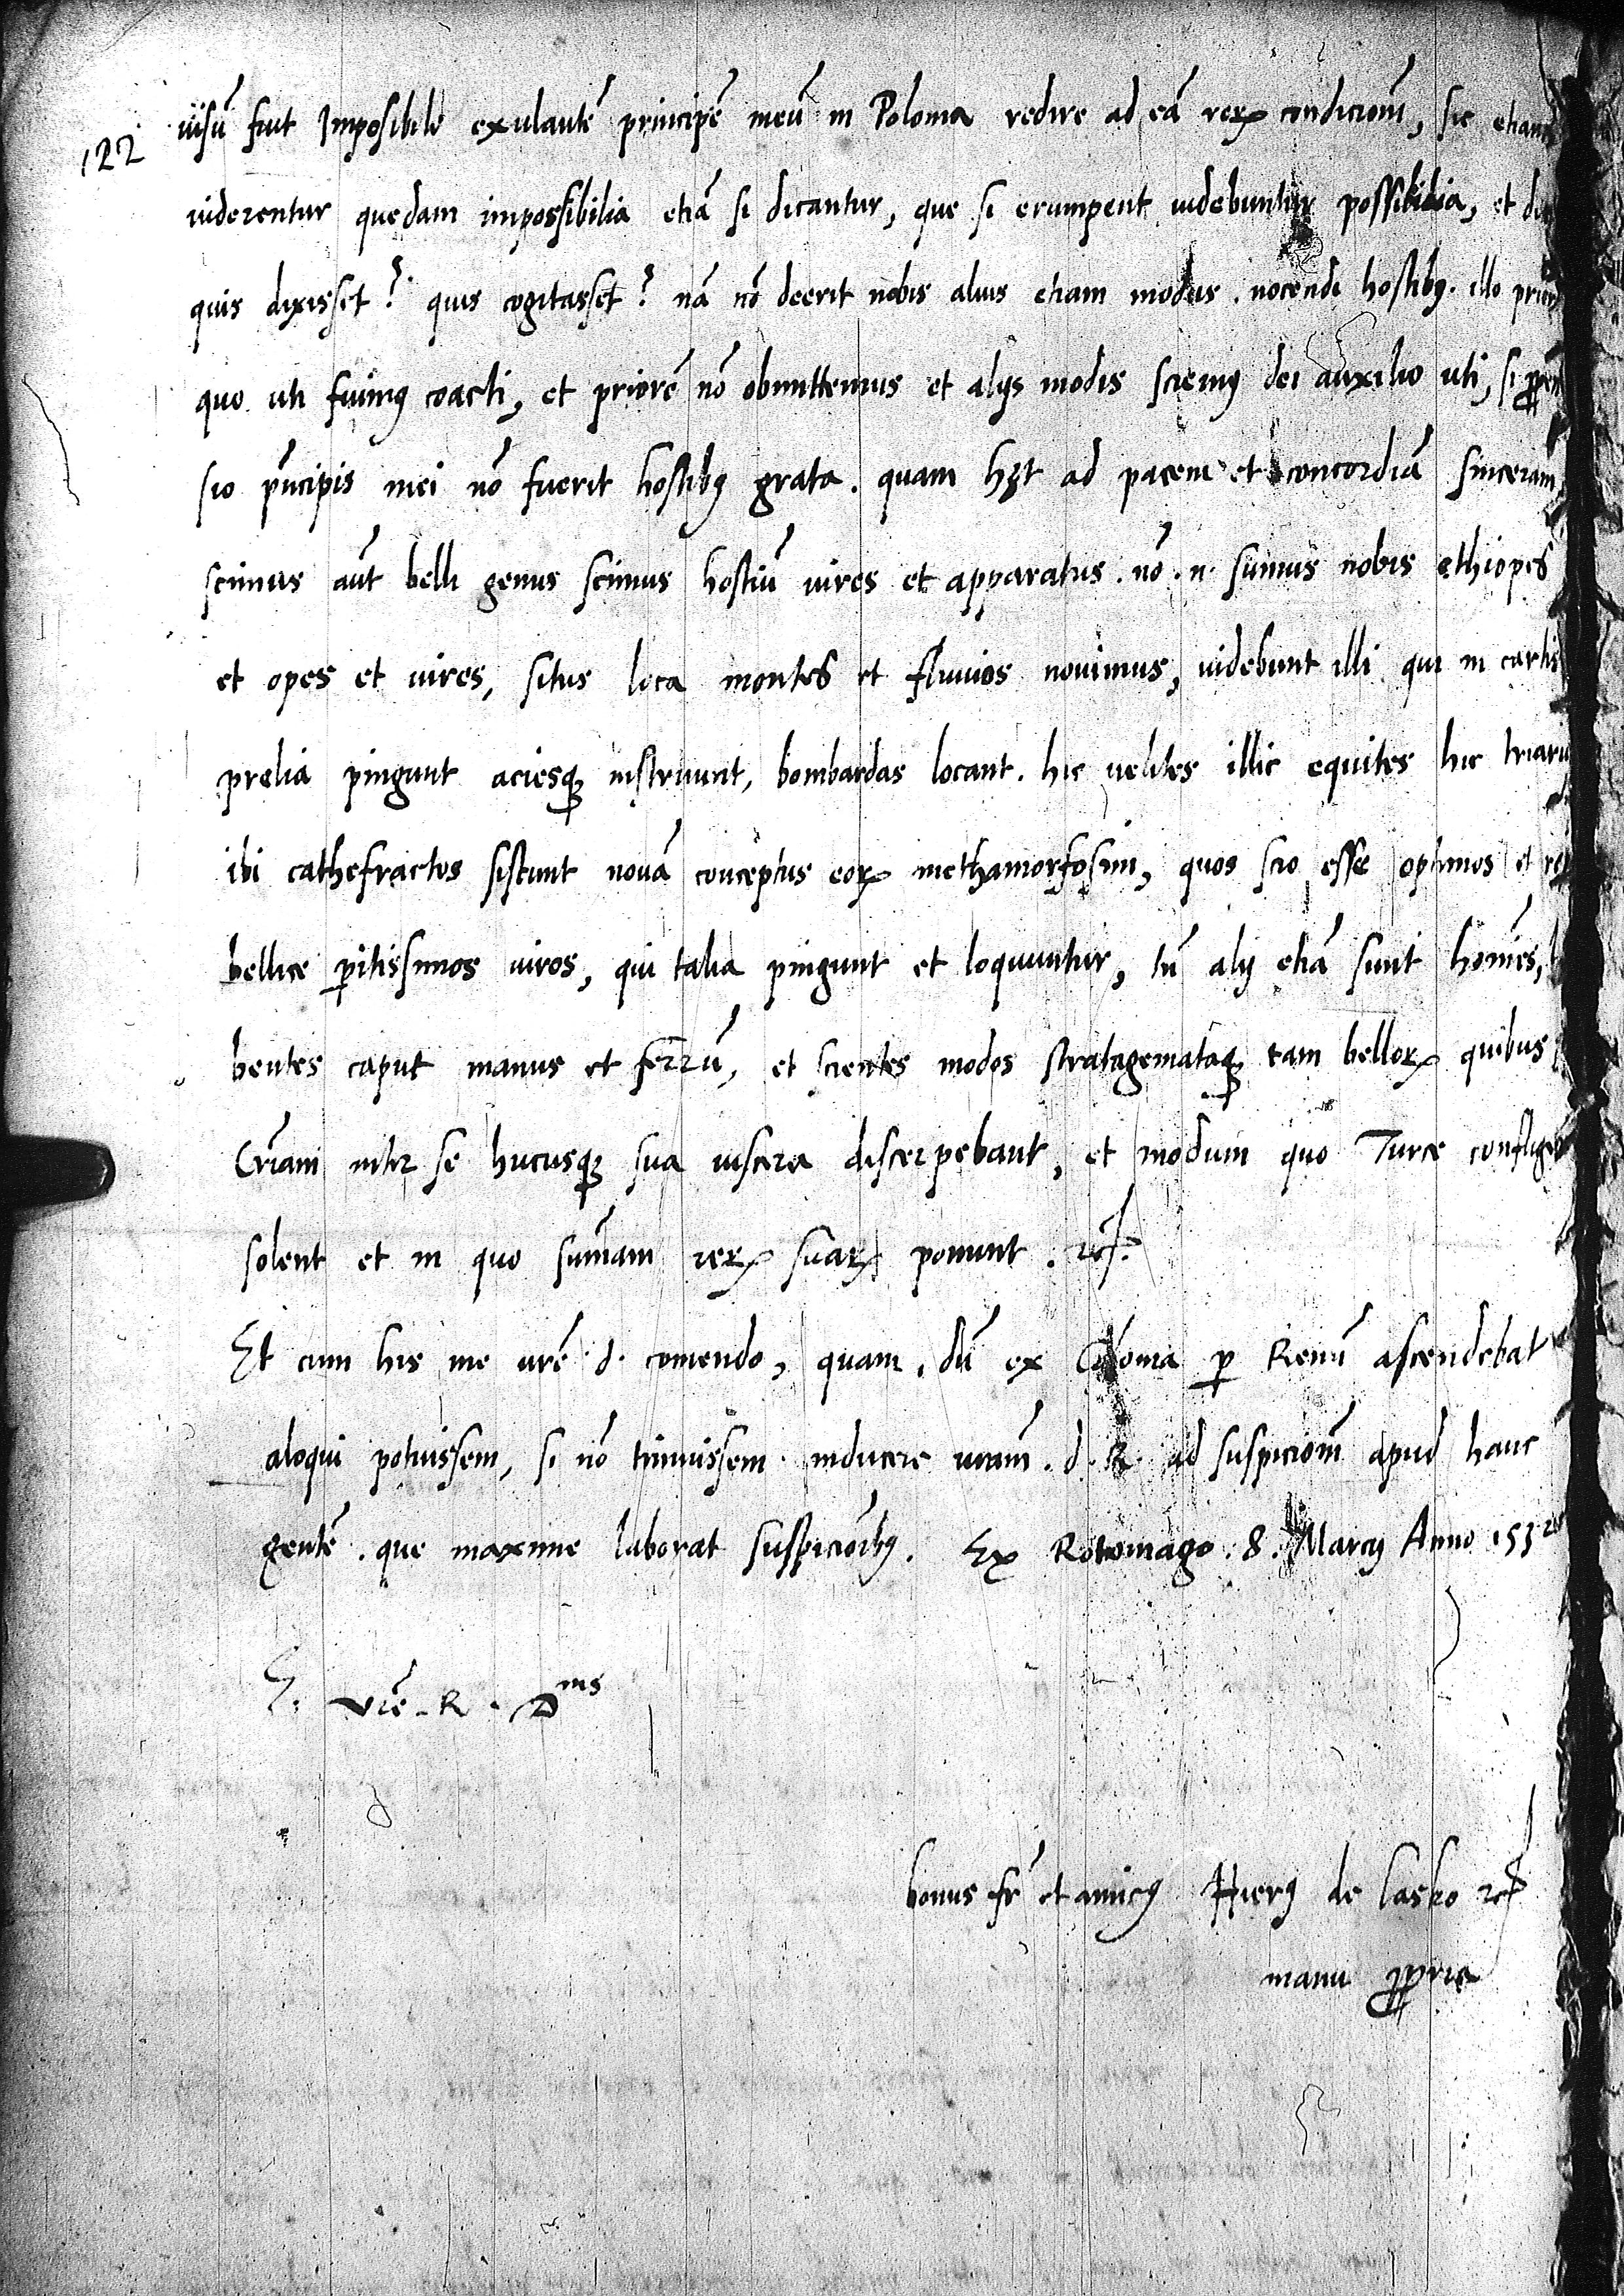 122
visũ fuit Imposibile exulantẽ principẽ meũ in Polonia redire ad eã rerꝝ condicionẽ, sic etiam
viderentur quedam impossibilia etiã si dicantur, que si erumpent videbuntur possibilia, et
quis dixisset? quis cogitasset? nã nõ deerit nobis alius etiam modus. nocendi hostibꝰ. illo
quo uti fuimꝰ coacti, et priorẽ nõ obmittemus et alijs modis sciemꝰ dei auxilio uti, si
sio prĩcipis mei nõ fuerit hostibꝰ grata. quam hꝫt ad pacem et concordiã sinceram
scimus aũt belli genus scimus hostiũ vires et apparatus. nõ. n. sumus nobis ethiopes
et opes et vires, situs loca montes et fluvios novimus, videbunt illi qui in cartis
prelia pingunt aciesqꝫ instruunt, bombardas locant. hic velites illic equites hic
ibi cathefractos sistunt novã conceptus eorꝝ methamorfosim, quos scio esse optimos et
bellice ꝑitissimos viros, qui talia pingunt et loquuntur, tñ alij etiã sunt homĩes,
bentes caput manus et ferrũ, et scientes modos stratagemataqꝫ tam bellorꝝ quibus
Cr̃iani inter se hucusqꝫ sua viscera discerpebant, et modum quo Turce
solent et in quo sum̃am rerꝝ suarꝝ ponunt. ꝛcꝭ.
Et cum his me vr̃e. d. comendo, quam. dũ ex Colonia ꝑ Renũ ascendebat
aloqui potuissem, si nõ timuissem. inducere vr̃am. d. R. ad suspicionẽ apud hanc
gentẽ. que maxime laborat suspiciõibꝰ. Ex Rotomago. 8. Marcij Anno 1532
E. vr̃e. R. Dnis
bonus fr̃ et amicꝰ Hierꝰ de Lasko ꝛcꝭ
manu ꝓpria